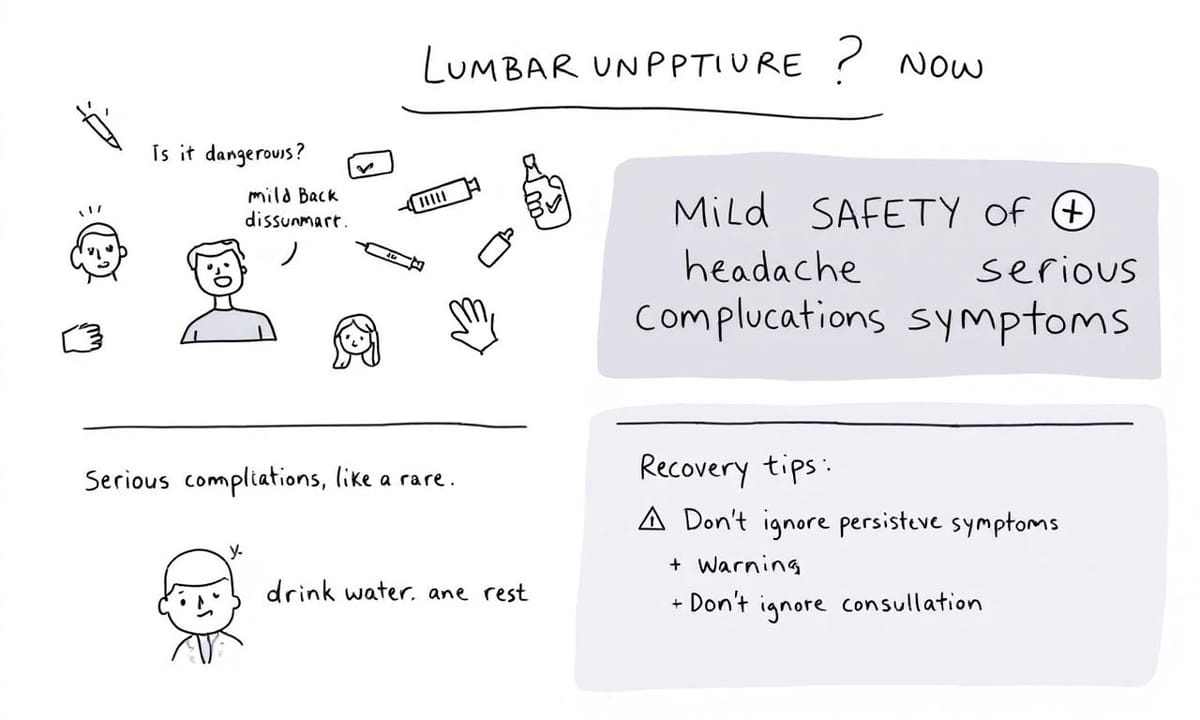 LUMBAR UNPPTIURE ? NOW
Is it dangerous?
mild Back
dissunmart.
Mild SAFETY of +
headache serious
complucations symptoms
Serious compliations, like a rare.
drink water. ane rest
Recovery tips:
Don't ignore persisteve symptoms
+ Warning
+ Don't ignore consullation